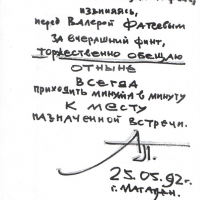 извиняясь,
перед Валерой Фатеевым
за вчерашний финт,
торжественно обещаю
отныне
всегда
приходить минута в минуту
к месту
назначенной встречи.
25.05.92 г.
г. Магадан.